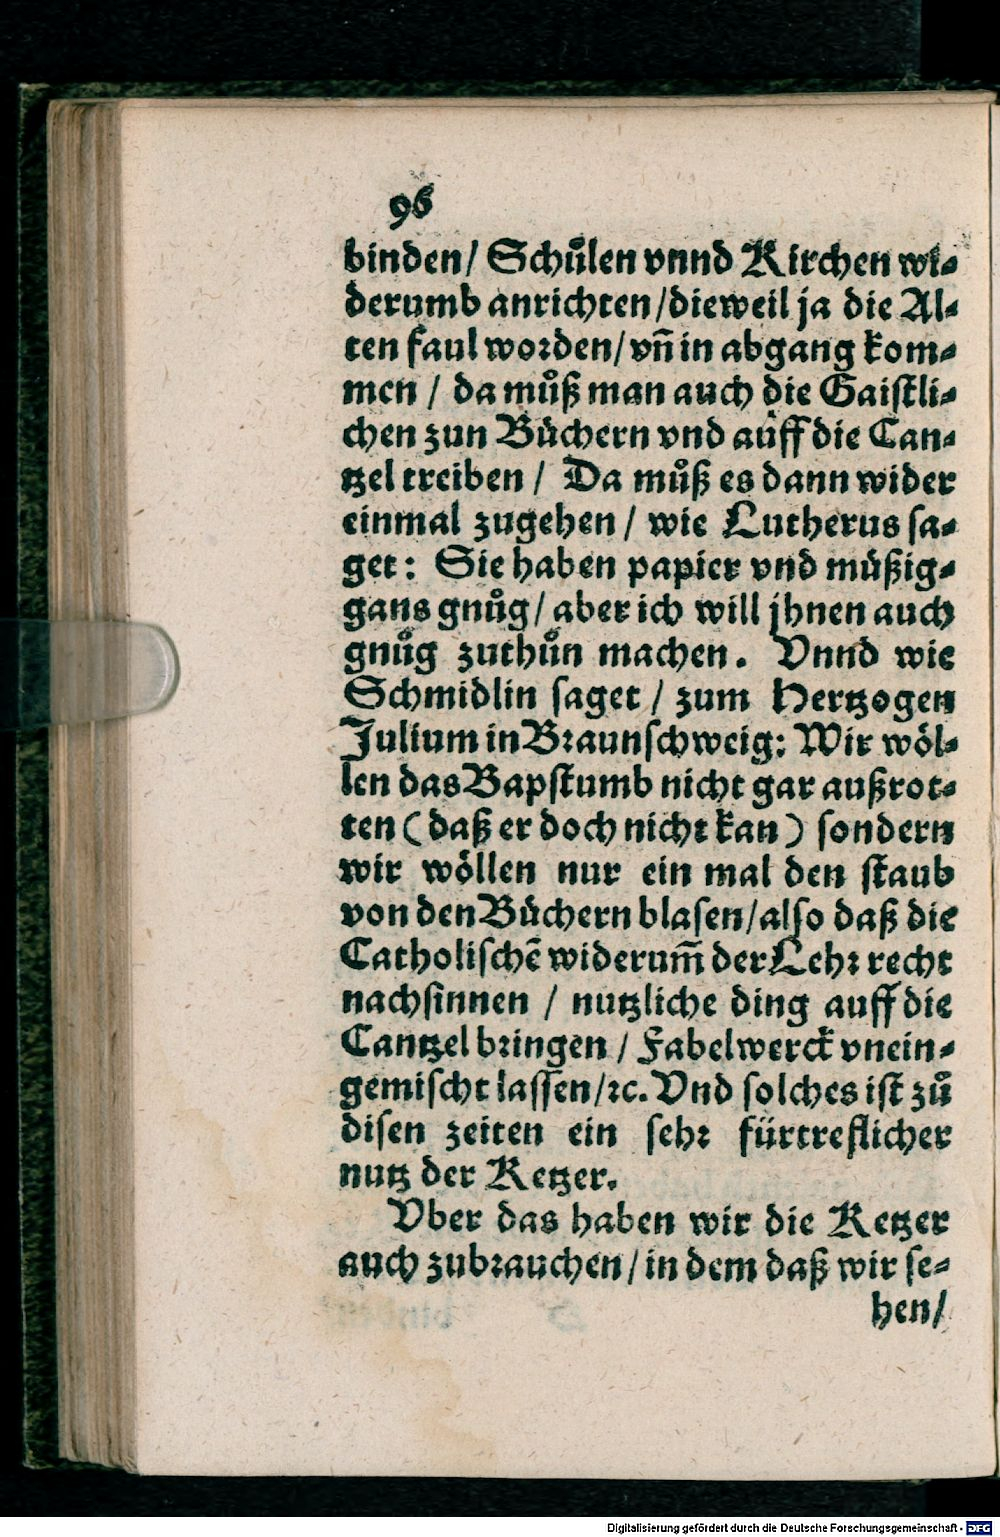 96
binden/ Schuͦlen vnnd Kirchen wi-
derumb anrichten/dieweil ja die Al-
ten faul worden/ vn̄ in abgang kom-
men / da muͦß man auch die Gaistli-
chen zun Buͤchern vnd auff die Can-
tzel treiben / Da muͦß es dann wider
einmal zugehen / wie Lutherus sa-
get: Sie haben papier vnd muͤßig-
gans gnuͦg/ aber ich will jhnen auch
gnuͦg zuthuͦn machen. Vnnd wie
Schmidlin saget / zum Hertzogen
Julium in Braunschweig: Wir woͤl-
len das Bapstumb nicht gar außrot-
ten (daß er doch nicht kan) sondern
wir woͤllen nur ein mal den staub
von den Buͤchern blasen/also daß die
Catholischē widerum̄ der Lehr recht
nachsinnen / nutzliche ding auff die
Cantzel bringen / Fabelwerck vnein-
gemischt lassen/ꝛc. Vnd solches ist zuͦ
disen zeiten ein sehr fürtreflicher
nutz der Ketzer.
Vber das haben wir die Ketzer
auch zubrauchen/in dem daß wir se-
hen/
Digitalisierung gefördert durch die Deutsche Forschungsgemeinschaft - DFG